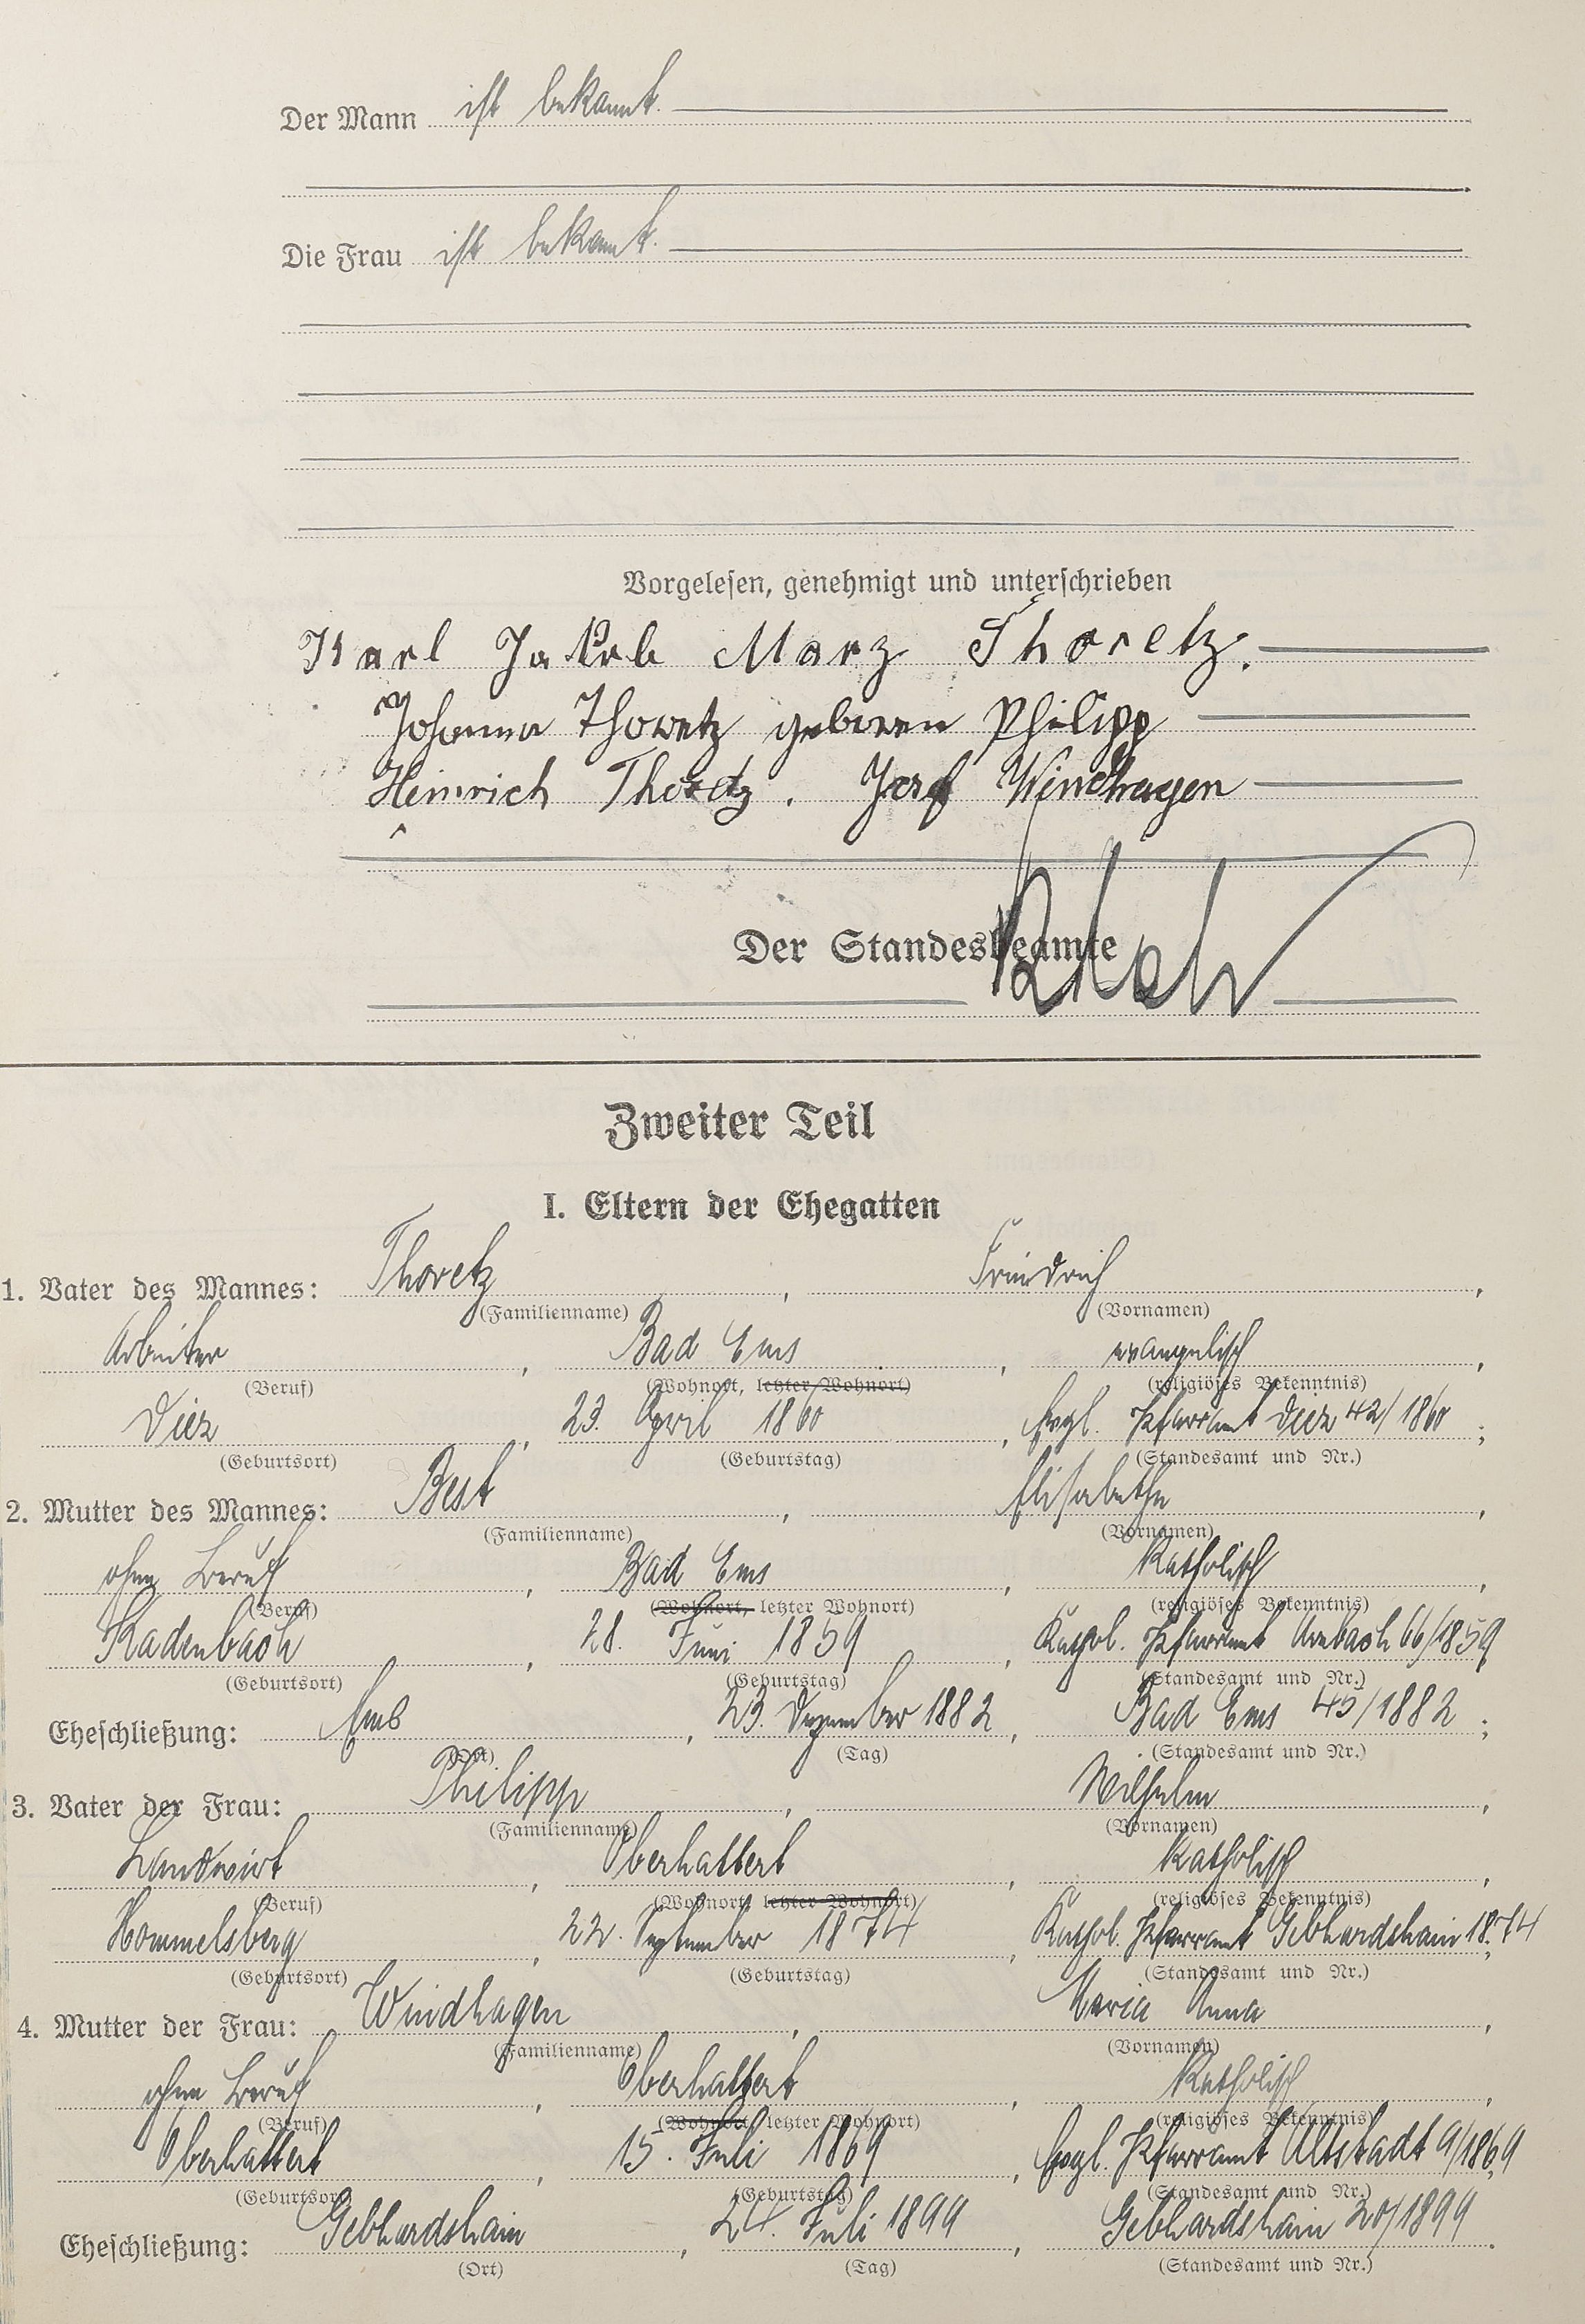 Der Mann ist bekannt.
Die Frau ist bekannt.
Vorgelesen, genehmigt und unterschrieben
Karl Jakob Marz Thoretz.
Johanna Thoretz geboren Philipp
Heinrich Thoretz. Josef Windhagen
Der Standesbeamte
Zweiter Teil
I. Eltern der Ehegatten
1. Vater des Mannes: Thoretz, Friedrich,
(Familienname) (Vornamen)
Arbeiter, Bad Ems, evangelisch,
(Beruf) (Wohnort, letzter Wohnort) (religiöses Bekenntnis)
Diez, 23. April 1860, Evgl. Pfarramt Diez 42/1860;
(Geburtsort) (Geburtstag) (Standesamt und Nr.)
2. Mutter des Mannes: Best, Elisabethe,
(Familienname) (Vornamen)
ohne Beruf, Bad Ems, Katholisch,
(Beruf) (Wohnort, letzter Wohnort) (religiöses Bekenntnis)
Kadenbach, 28. Juni 1859, Kathol. Pfarramt Arzbach 66/1859
(Geburtsort) (Geburtstag) (Standesamt und Nr.)
Eheschließung: Ems, 23. Dezember 1882, Bad Ems 45/1882;
(Ort) (Tag) (Standesamt und Nr.)
3. Vater der Frau: Philipp, Wilhelm,
(Familienname) (Vornamen)
Landwirt, Oberhattert, Katholisch,
(Beruf) (Wohnort, letzter Wohnort) (religiöses Bekenntnis)
Hommelsberg, 22. September 1874, Kathol. Pfarramt Gebhardshain 1874;
(Geburtsort) (Geburtstag) (Standesamt und Nr.)
4. Mutter der Frau: Windhagen, Maria Anna,
(Familienname) (Vornamen)
ohne Beruf, Oberhattert, Katholisch,
(Beruf) (Wohnort, letzter Wohnort) (religiöses Bekenntnis)
Oberhattert, 15. Juli 1869, Evgl. Pfarramt Altstadt 9/1869,
(Geburtsort) (Geburtstag) (Standesamt und Nr.)
Eheschließung: Gebhardshain, 24. Juli 1899, Gebhardshain 20/1899.
(Ort) (Tag) (Standesamt und Nr.)